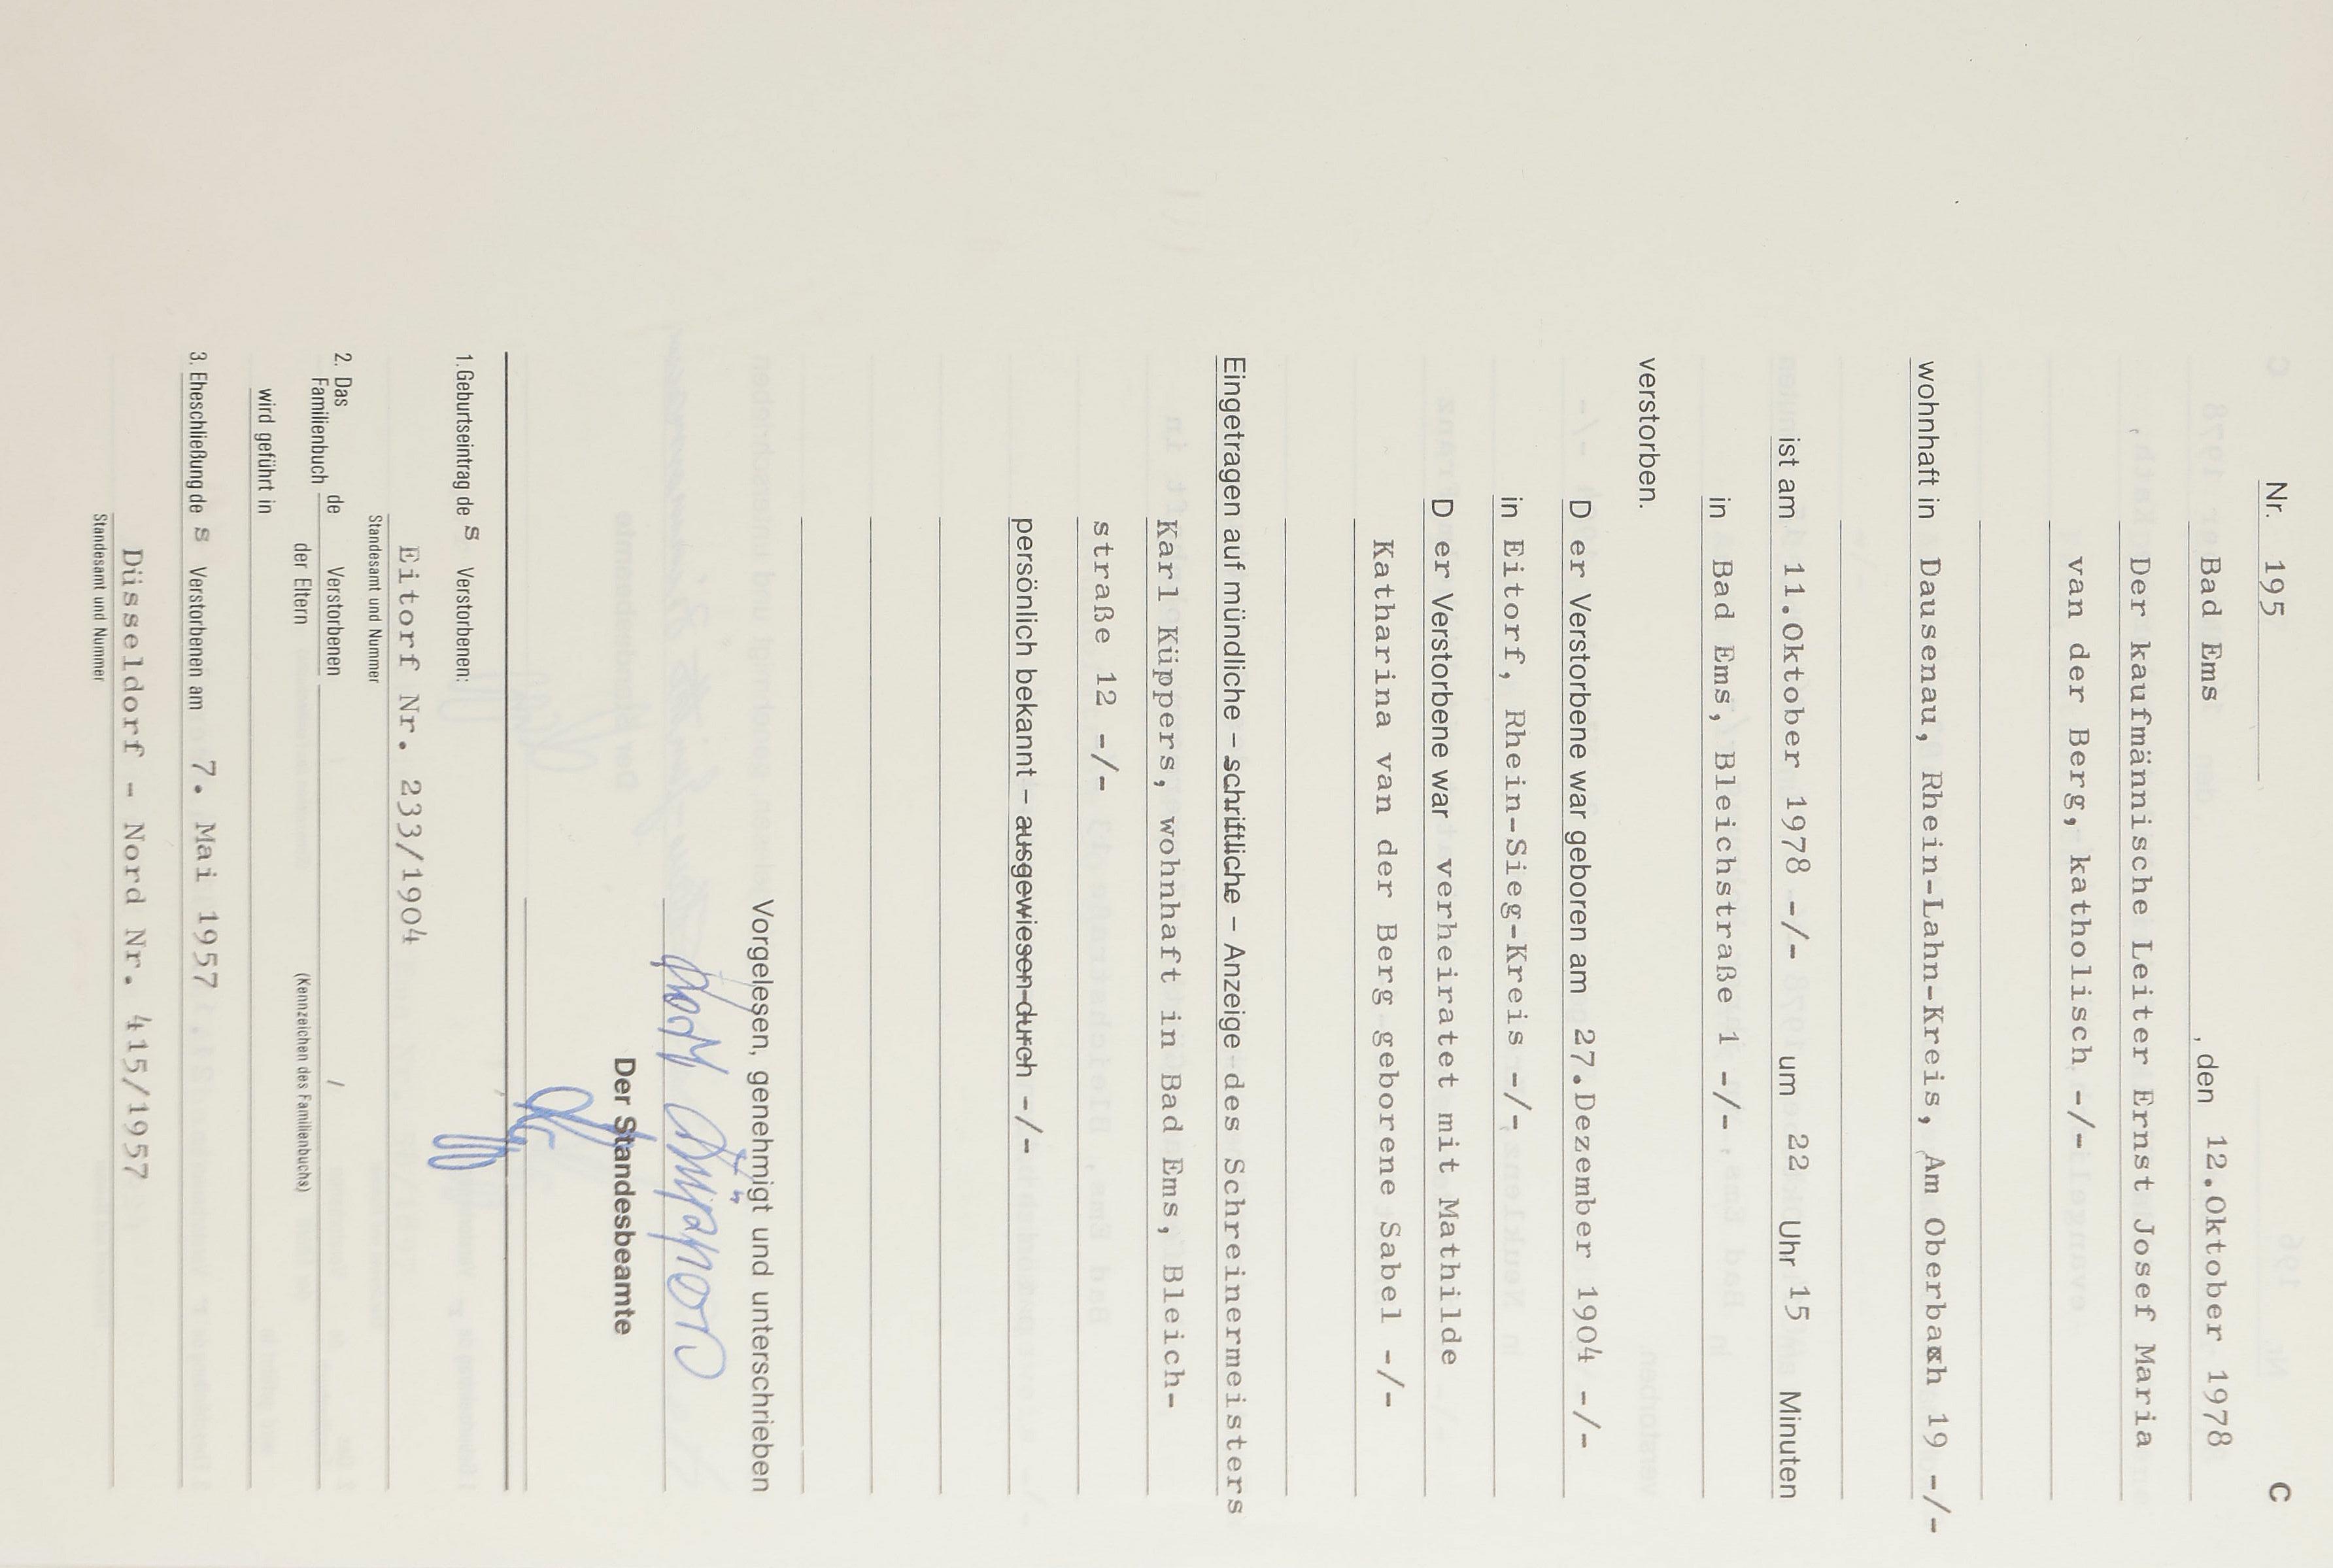 C
Nr. 195
Bad Ems, den 12.Oktober 1978
Der kaufmännische Leiter Ernst Josef Maria
van der Berg, katholisch -/-
wohnhaft in Dausenau, Rhein-Lahn-Kreis, Am Oberbach 19 -/-
ist am 11.Oktober 1978 -/- um 22 Uhr 15 Minuten
in Bad Ems, Bleichstraße 1 -/-
verstorben.
D er Verstorbene war geboren am 27.Dezember 1904 -/-
in Eitorf, Rhein-Sieg-Kreis -/-
D er Verstorbene war verheiratet mit Mathilde
Katharina van der Berg geborene Sabel -/-
Eingetragen auf mündliche – schriftliche – Anzeige des Schreinermeisters
Karl Küppers, wohnhaft in Bad Ems, Bleich-
straße 12 -/-
persönlich bekannt – ausgewiesen durch -/-
Vorgelesen, genehmigt und unterschrieben
Der Standesbeamte
1. Geburtseintrag de s Verstorbenen:
Eitorf Nr. 233/1904
Standesamt und Nummer
2. Das Familienbuch de Verstorbenen /
der Eltern
(Kennzeichen des Familienbuchs)
wird geführt in
3. Eheschließung de s Verstorbenen am 7. Mai 1957
Düsseldorf - Nord Nr. 415/1957
Standesamt und Nummer